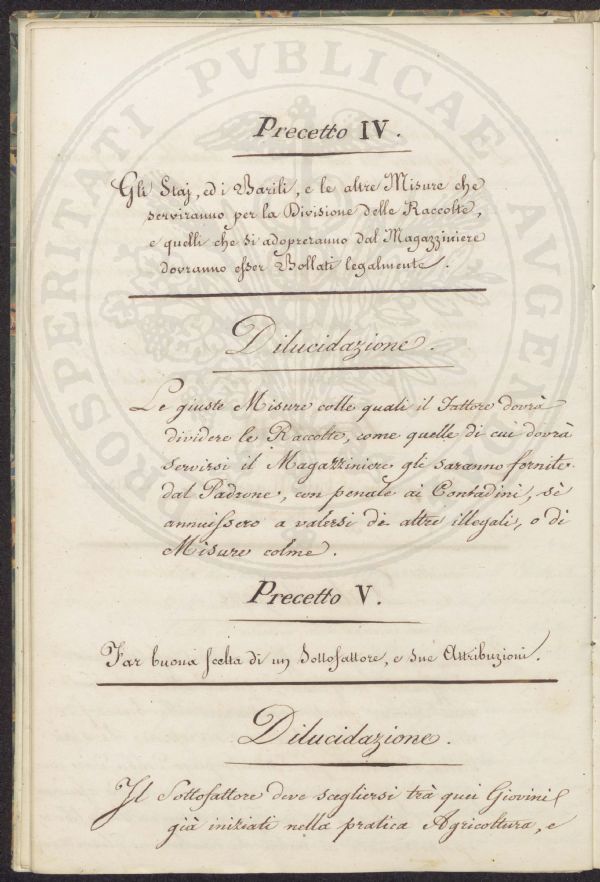 PROSPERITATI PVBLICAE AVGENDAE
Precetto IV.
Gli Staj, ed i Barili, e le altre Misure che
serviranno per la Divisione delle Raccolte,
e quelli che si adopreranno dal Magazziniere
dovranno esser Bollati legalmente.
Dilucidazione.
Le giuste Misure colle quali il Fattore dovrà
dividere le Raccolte, come quelle di cui dovrà
servirsi il Magazziniere gli saranno fornite
dal Padrone, con penale ai Contadini, sè
annuissero a valersi di altre illegali, o di
Misure colme.
Precetto V.
Far buona scelta di un Sottofattore, e sue Attribuzioni.
Dilucidazione.
Il Sottofattore deve scegliersi trà quei Giovini
già iniziati nella pratica Agricoltura, e